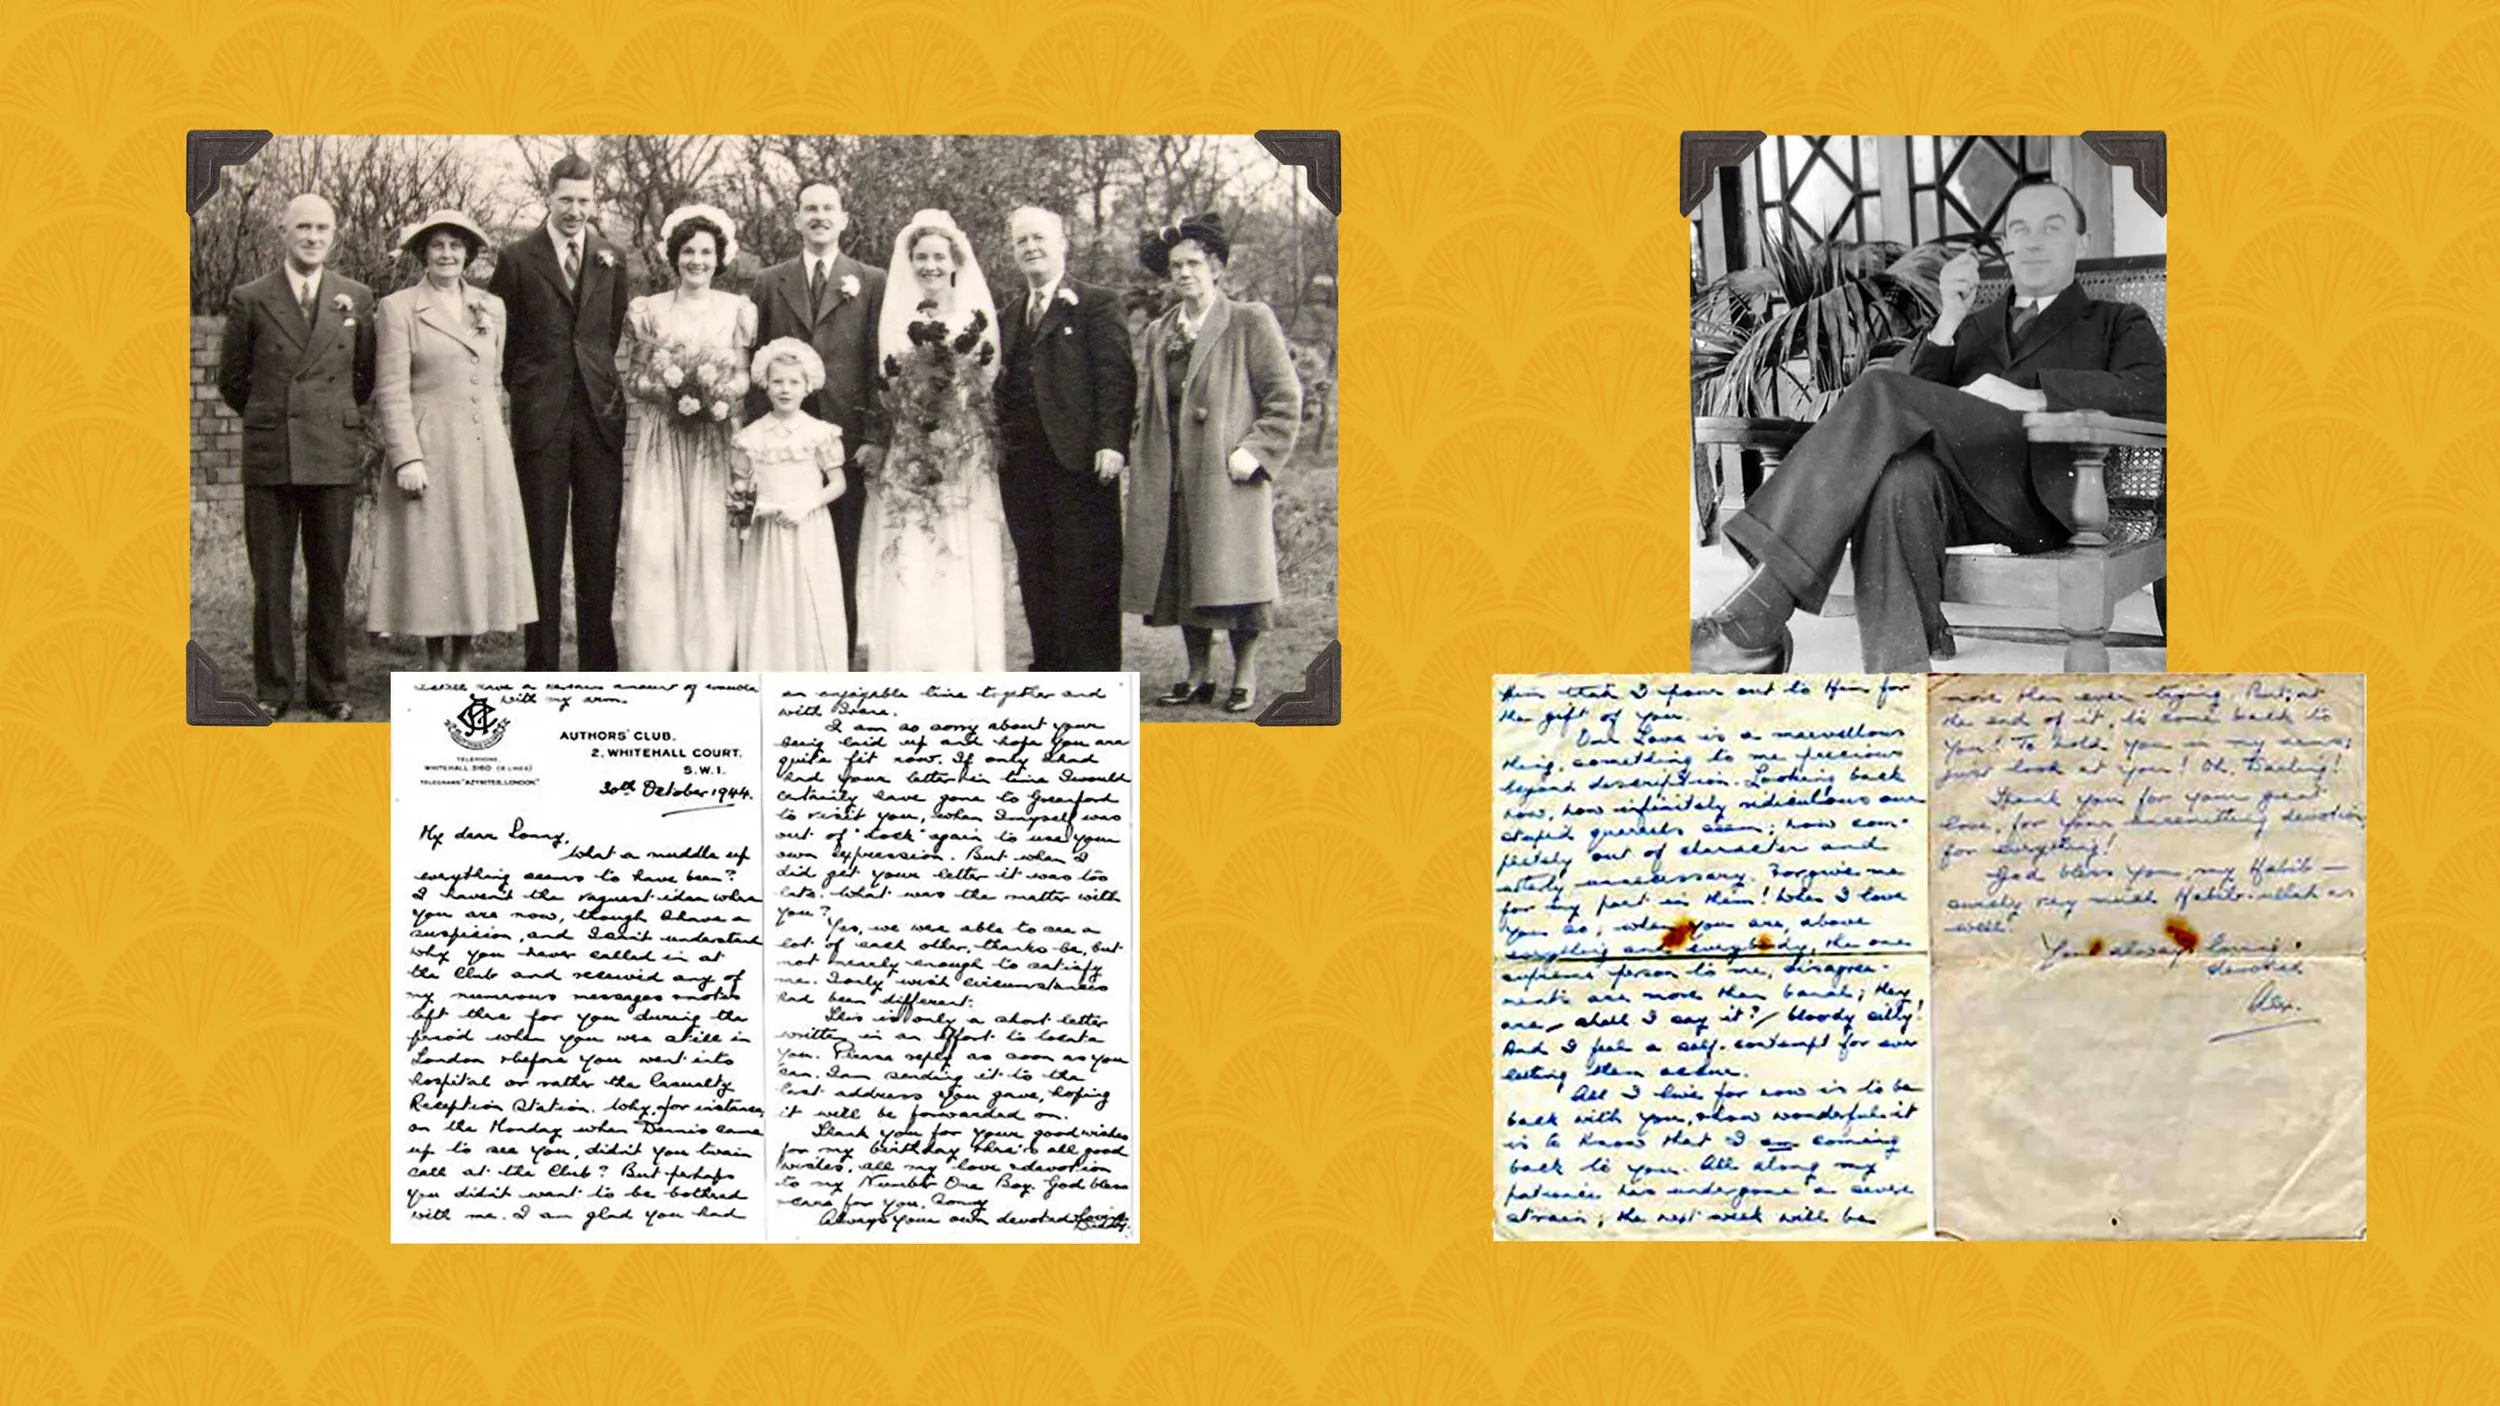 with my arm.
AUTHORS' CLUB.
2, WHITEHALL COURT.
S.W.1.
TELEPHONE.
WHITEHALL 3160 (6 LINES)
TELEGRAMS "AZYRITES, LONDON."
30th October 1944.
My dear Sonny,
What a muddle up
everything seems to have been?
I haven't the vaguest idea where
you are now, though I have a
suspicion, and I can't understand
why you never called in at
the Club and received any of
my numerous messages & notes
left there for you during the
period when you were still in
London & before you went into
hospital or rather the Casualty
Reception Station. Why, for instance,
on the Monday when Dennis came
up to see you, didn't you twain
call at the Club? But perhaps
you didn't want to be bothered
with me. I am glad you had
an enjoyable time together and
with
I am so sorry about your
being laid up and hope you are
quite fit now. If only I had
had your letter in time I would
certainly have gone to Greenford
to visit you, when I myself was
out of "dock" again to use your
own expression. But when I
did get your letter it was too
late. What was the matter with
you?
Yes, we were able to see a
lot of each other, thanks be, but
not nearly enough to satisfy
me. I only wish circumstances
had been different.
This is only a short letter
written in an effort to locate
you. Please reply as soon as you
can. I am sending it to the
last address you gave, hoping
it will be forwarded on.
Thank you for your good wishes
for my birthday. Here's all good
wishes, all my love & devotion
to my Number One Boy. God bless
& care for you, Sonny
Always your own devoted loving
Daddy.
Him that I pour out to Him for
the gift of you.
Our Love is a marvellous
thing, something to me precious
beyond description. Looking back
now, how infinitely ridiculous our
stupid quarrels seem; how com-
pletely out of character and
utterly unnecessary. Forgive me
for my part in them! When I love
you so, when you are, above
everything and everybody, the one
supreme person to me, disagree-
ments are more than banal; they
are, shall I say it?, bloody silly!
And I feel a self-contempt for ever
letting them occur.
All I live for now is to be
back with you, & how wonderful it
is to know that I am coming
back to you. All along my
patience has undergone a severe
strain; the next week will be
more than ever trying. But, at
the end of it, to come back to
you! To hold you in my arms;
just look at you! Oh, Darling!
Thank you for your great
love, for your unremitting devotion,
for everything!
God bless you, my Habib —
surely very much Habib
well!
Your always loving &
devoted
Alex.